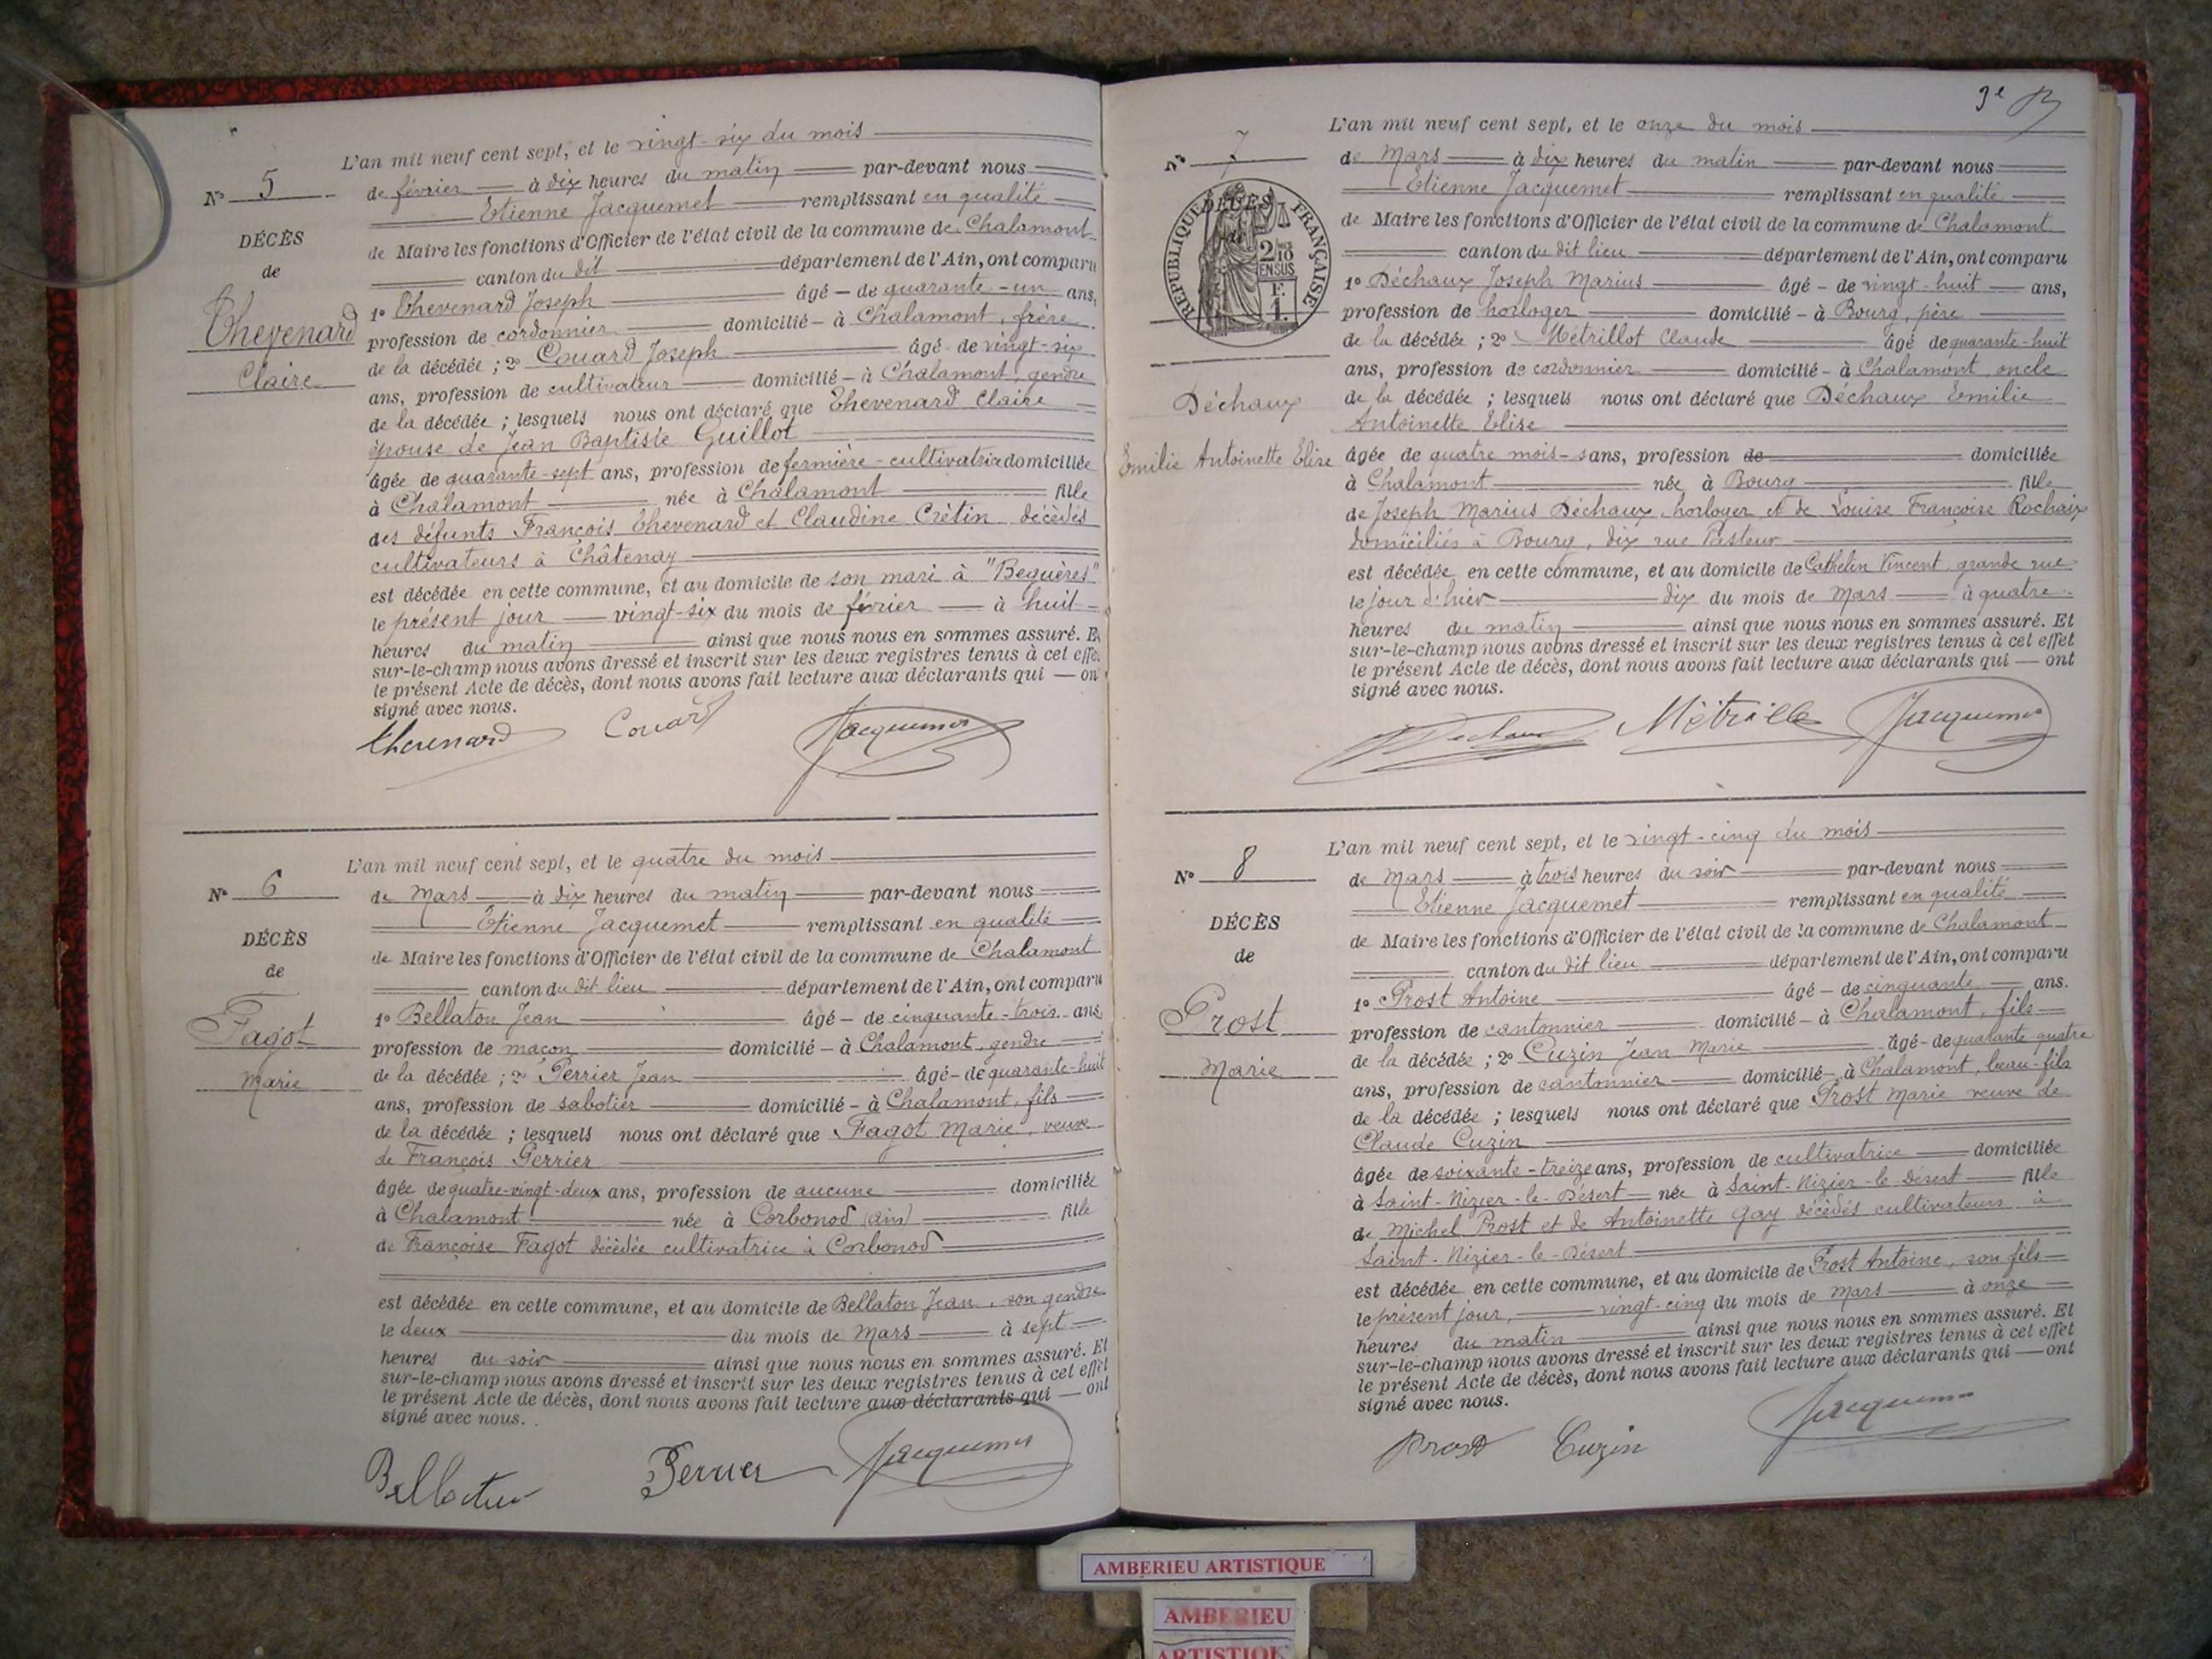 L'an mil neuf cent sept, et le vingt-six du mois
N° 5
de février à dix heures du matin par-devant nous
Etienne Jacquemet remplissant en qualité
DÉCÈS
de Maire les fonctions d'Officier de l'état civil de la commune de Chalamont
de
canton du dit département de l'Ain, ont comparu
Thevenard
Claire
1° Thevenard Joseph âgé de quarante-un ans,
profession de cordonnier domicilié à Chalamont, frère
de la décédée ; 2° Couard Joseph âgé de vingt-six
ans, profession de cultivateur domicilié à Chalamont, gendre
de la décédée ; lesquels nous ont déclaré que Thevenard Claire
épouse de Jean Baptiste Guillot
âgée de quarante-sept ans, profession de fermière-cultivatrice domiciliée
à Chalamont née à Chalamont fille
des défunts François Thevenard et Claudine Crétin décédés
cultivateurs à Châtenay
est décédée en cette commune, et au domicile de son mari à "Bequères"
le présent jour vingt-six du mois de février à huit
heures du matin ainsi que nous nous en sommes assuré. Et
sur-le-champ nous avons dressé et inscrit sur les deux registres tenus à cet effet
le présent Acte de décès, dont nous avons fait lecture aux déclarants qui ont
signé avec nous.
Thevenard Couard Jacquemet
L'an mil neuf cent sept, et le quatre du mois
N° 6
de Mars à dix heures du matin par-devant nous
Etienne Jacquemet remplissant en qualité
DÉCÈS
de Maire les fonctions d'Officier de l'état civil de la commune de Chalamont
de
canton du dit lieu département de l'Ain, ont comparu
Fagot
Marie
1° Bellaton Jean âgé de cinquante-trois ans,
profession de maçon domicilié à Chalamont, gendre
de la décédée ; 2° Perrier Jean âgé de quarante-huit
ans, profession de sabotier domicilié à Chalamont, fils
de la décédée ; lesquels nous ont déclaré que Fagot Marie, veuve
de François Perrier
âgée de quatre-vingt-deux ans, profession de aucune domiciliée
à Chalamont née à Corbonod (ain) fille
de Françoise Fagot décédée cultivatrice à Corbonod
est décédée en cette commune, et au domicile de Bellaton Jean, son gendre
le deux du mois de Mars à sept
heures du soir ainsi que nous nous en sommes assuré. Et
sur-le-champ nous avons dressé et inscrit sur les deux registres tenus à cet effet
le présent Acte de décès, dont nous avons fait lecture aux déclarants qui ont
signé avec nous.
Bellaton Perrier Jacquemet
3e
L'an mil neuf cent sept, et le onze du mois
N° 7
de Mars à dix heures du matin par-devant nous
Etienne Jacquemet remplissant en qualité
DÉCÈS
de
RÉPUBLIQUE FRANÇAISE
2/10 EN SUS
F. 1.
de Maire les fonctions d'Officier de l'état civil de la commune de Chalamont
canton du dit lieu département de l'Ain, ont comparu
1° Déchaux Joseph Marius âgé de vingt-huit ans,
profession de horloger domicilié à Bourg, père
de la décédée ; 2° Métrillot Claude âgé de quarante-huit
ans, profession de cordonnier domicilié à Chalamont oncle
Déchaux
Emilie Antoinette Elise
de la décédée ; lesquels nous ont déclaré que Déchaux Emilie
Antoinette Elise
âgée de quatre mois sans, profession de domiciliée
à Chalamont née à Bourg fille
de Joseph Marius Déchaux horloger et de Louise Françoise Rochaix
domiciliés à Bourg, dix rue Pasteur
est décédée en cette commune, et au domicile de Cathelin Vincent, grande rue
le jour d'hier dix du mois de Mars à quatre
heures du matin ainsi que nous nous en sommes assuré. Et
sur-le-champ nous avons dressé et inscrit sur les deux registres tenus à cet effet
le présent Acte de décès, dont nous avons fait lecture aux déclarants qui ont
signé avec nous.
Dechaux Métrillot Jacquemet
L'an mil neuf cent sept, et le vingt-cinq du mois
N° 8
de Mars à trois heures du soir par-devant nous
Etienne Jacquemet remplissant en qualité
DÉCÈS
de Maire les fonctions d'Officier de l'état civil de la commune de Chalamont
de
canton du dit lieu département de l'Ain, ont comparu
Prost
Marie
1° Prost Antoine âgé de cinquante ans.
profession de cantonnier domicilié à Chalamont, fils
de la décédée ; 2° Cuzin Jean Marie âgé de quarante-quatre
ans, profession de cantonnier domicilié à Chalamont, beau-fils
de la décédée ; lesquels nous ont déclaré que Prost Marie veuve de
Claude Cuzin
âgée de soixante-treize ans, profession de cultivatrice domiciliée
à Saint-Nizier-le-Désert née à Saint-Nizier-le-Désert fille
de Michel Prost et de Antoinette Gay décédés cultivateurs à
Saint-Nizier-le-Désert
est décédée en cette commune, et au domicile de Prost Antoine, son fils
le présent jour, vingt-cinq du mois de Mars à onze
heures du matin ainsi que nous nous en sommes assuré. Et
sur-le-champ nous avons dressé et inscrit sur les deux registres tenus à cet effet
le présent Acte de décès, dont nous avons fait lecture aux déclarants qui ont
signé avec nous.
Prost Cuzin Jacquemet
AMBERIEU ARTISTIQUE
AMBERIEU